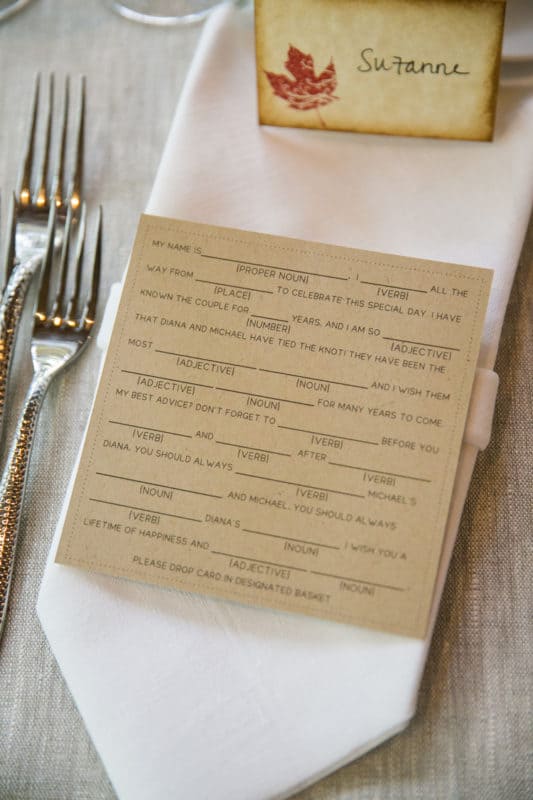 Suzanne
MY NAME IS____________, I ________ ALL THE
(PROPER NOUN) (VERB)
WAY FROM ________ TO CELEBRATE THIS SPECIAL DAY. I HAVE
(PLACE)
KNOWN THE COUPLE FOR ____ YEARS, AND I AM SO ________
(NUMBER) (ADJECTIVE)
THAT DIANA AND MICHAEL HAVE TIED THE KNOT! THEY HAVE BEEN THE
MOST ________ ________ AND I WISH THEM
(ADJECTIVE) (NOUN)
________ ________ FOR MANY YEARS TO COME.
(ADJECTIVE) (NOUN)
MY BEST ADVICE? DON'T FORGET TO ________ BEFORE YOU
(VERB)
________ AND ________ AFTER ________
(VERB) (VERB) (VERB)
DIANA, YOU SHOULD ALWAYS ________ MICHAEL'S
(VERB)
________ AND MICHAEL, YOU SHOULD ALWAYS
(NOUN)
________ DIANA'S ________ I WISH YOU A
(VERB) (NOUN)
LIFETIME OF HAPPINESS AND ________ ________.
(ADJECTIVE) (NOUN)
PLEASE DROP CARD IN DESIGNATED BASKET